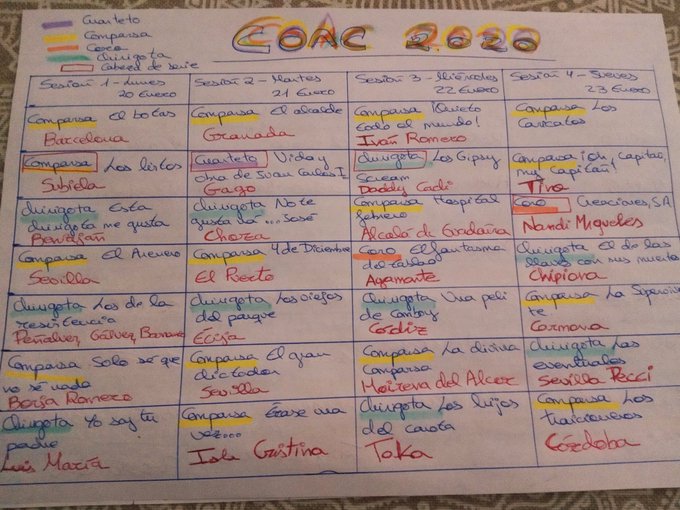 Cuarteto
Comparsa
Coro
Chirigota
Cabeza de serie
COAC 2.020
Sesión 1 - Lunes
20 Enero
Sesión 2 - Martes
21 Enero
Sesión 3 - Miércoles
22 Enero
Sesión 4 - Jueves
23 Enero
Comparsa El botas
Barcelona
Comparsa El alcalde
Granada
Comparsa ¡Quieto
todo el mundo!
Iván Romero
Comparsa Los
Caricatos
Comparsa Los listos
Subiela
Cuarteto Vida y
obra de Juan Carlos I
Gago
Chirigota Los Gipsy
Scream
Daddy Cadi
Comparsa ¡Oh, capitán,
my capitán!
Tino
Chirigota Esta
chirigota me gusta
Bendaján
Chirigota No te
gusta ná... José
Choza
Comparsa Hospital
febrero
Alcalá de Guadaíra
Coro Creaciones, S.A
Nandi Migueles
Comparsa El Arenero
Sevilla
Comparsa 4 de Diciembre
El Puerto
Coro El fantasma
del tablao
Agamante
Chirigota El de las
llaves con sus muertos
Chipiona
Chirigota Los de la
resistencia
Peñalver, Gálvez,
Chirigota Los viejos
del parque
Écija
Chirigota Una peli
de
Cordiz
Comparsa La Supervivien
te
Carmona
Comparsa Solo sé que
no sé nada
Borja Romero
Comparsa El gran
dictador
Sevilla
Comparsa La divina
comparsa
Mairena del Alcor
Chirigota Los
eventuales
Sevilla Pecci
Chirigota Yo soy tu
padre
Luis María
Comparsa Érase una
vez...
Isla Cristina
Chirigota Los hijos
del carota
Toka
Comparsa Los
traicioneros
Córdoba